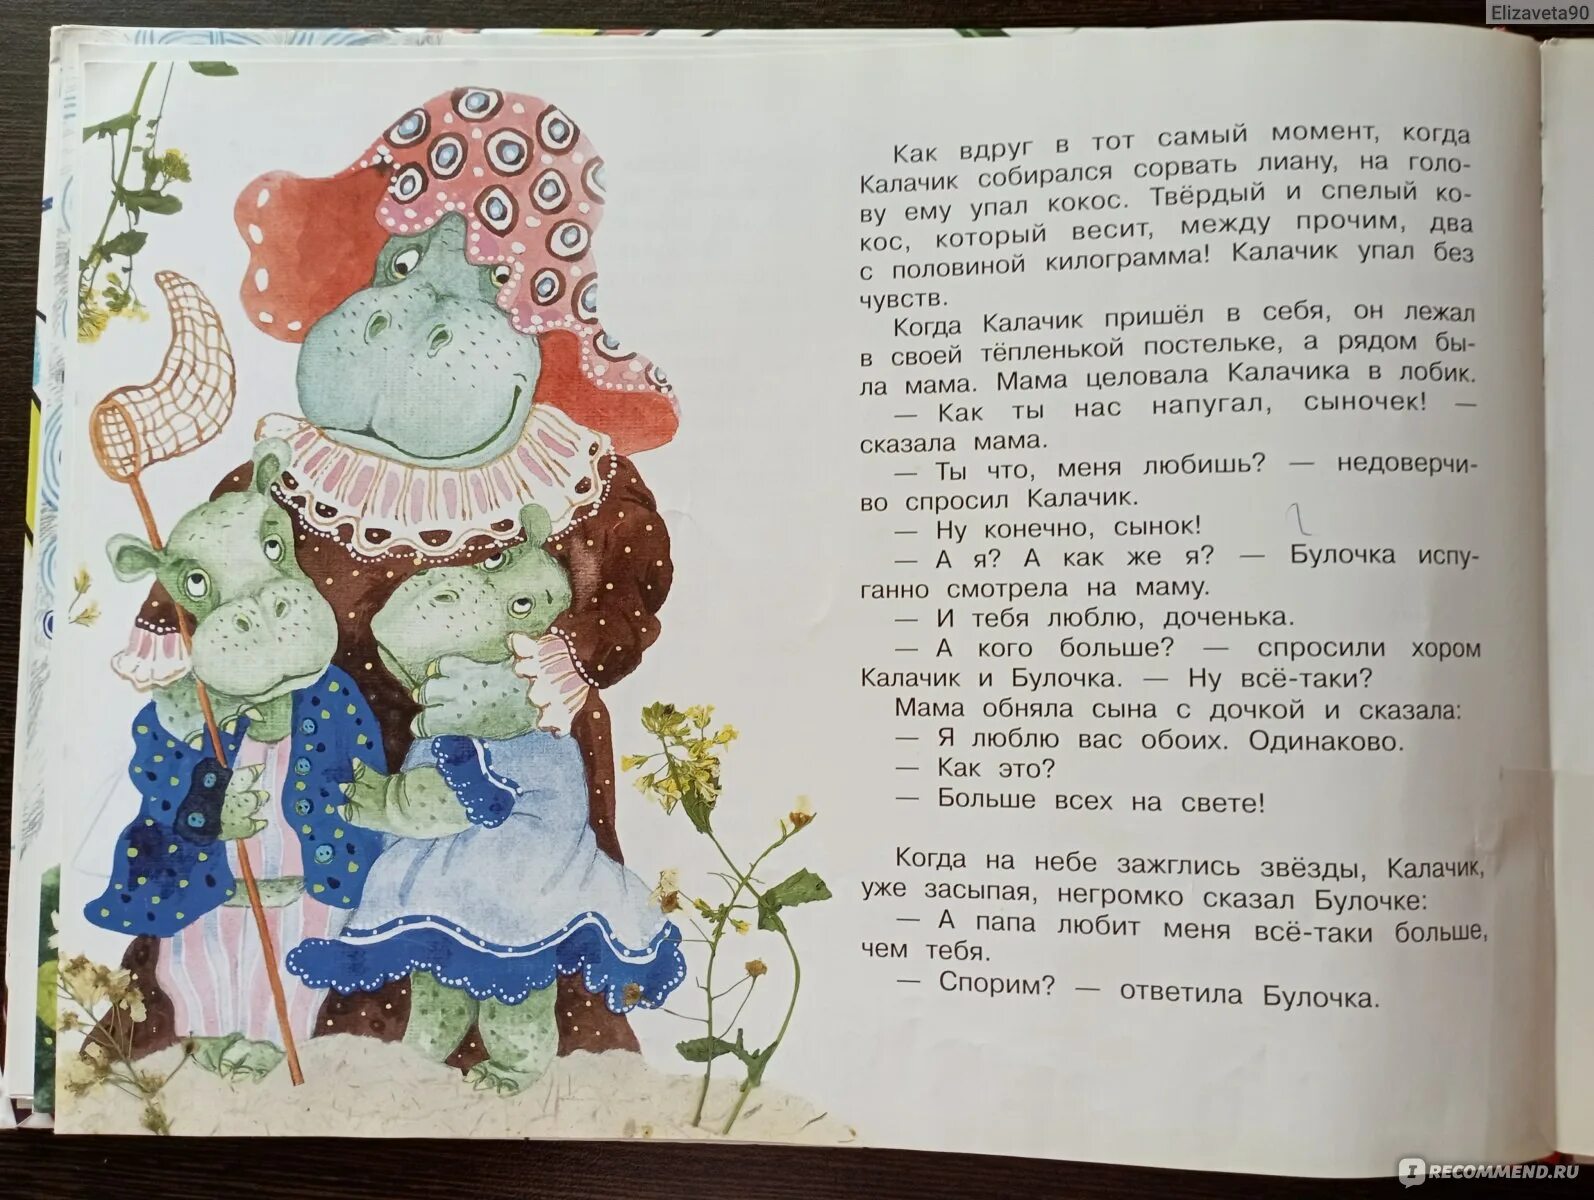 Elizaveta90
Как вдруг в тот самый момент, когда
Калачик собирался сорвать лиану, на голо-
ву ему упал кокос. Твёрдый и спелый ко-
кос, который весит, между прочим, два
с половиной килограмма! Калачик упал без
чувств.
Когда Калачик пришёл в себя, он лежал
в своей тёпленькой постельке, а рядом бы-
ла мама. Мама целовала Калачика в лобик.
— Как ты нас напугал, сыночек! —
сказала мама.
— Ты что, меня любишь? — недоверчи-
во спросил Калачик.
— Ну конечно, сынок!
— А я? А как же я? — Булочка испу-
ганно смотрела на маму.
— И тебя люблю, доченька.
— А кого больше? — спросили хором
Калачик и Булочка. — Ну всё-таки?
Мама обняла сына с дочкой и сказала:
— Я люблю вас обоих. Одинаково.
— Как это?
— Больше всех на свете!
Когда на небе зажглись звёзды, Калачик,
уже засыпая, негромко сказал Булочке:
— А папа любит меня всё-таки больше,
чем тебя.
— Спорим? — ответила Булочка.
I RECOMMEND.RU